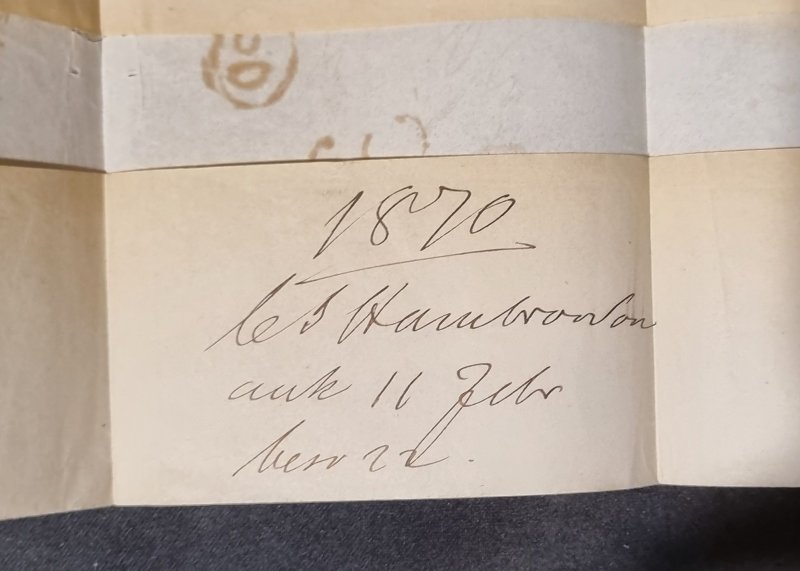 1870
C S Hambro & Son
ank 11 Febr
besv 22.